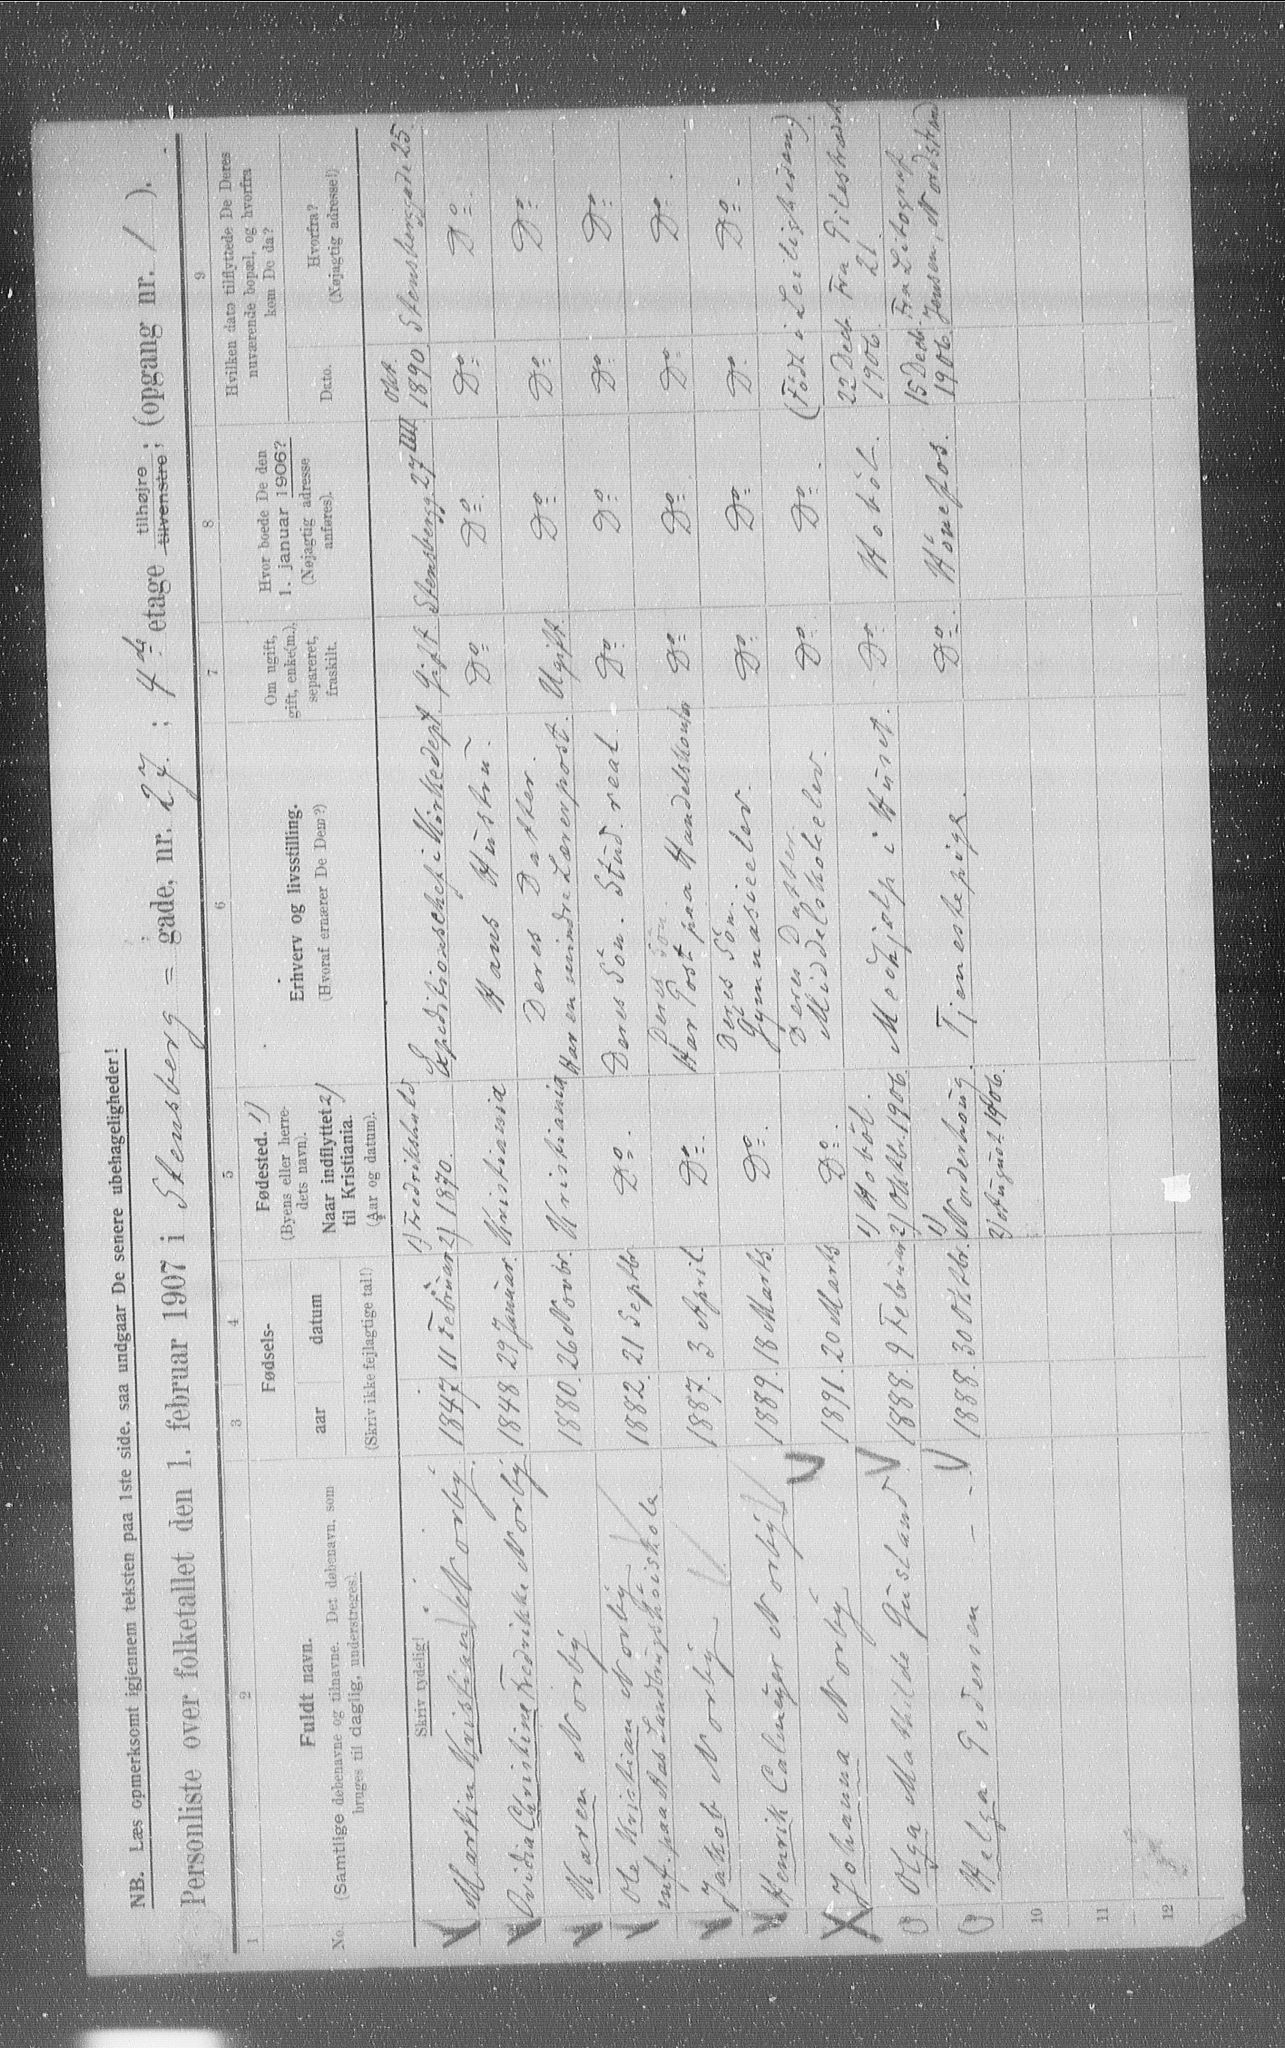 NB. Læs opmerksomt igjennem teksten paa 1ste side, saa undgaar De senere ubehageligheder!
Personliste over folketallet den 1. februar 1907 i Stensberg = gade, nr. 27 ; 4de etage tilhøjre tilvenstre ; (opgang nr. 1 ).
1 2 3 4 5 6 7 8 9
No. Fuldt navn.
(Samtlige døbenavne og tilnavne. Det døbenavn, som bruges til daglig, understreges).
Fødsels-
aar datum
(Skriv ikke fejlagtige tal!)
Fødested. 1)
(Byens eller herredets navn).
Naar indflyttet 2) til Kristiania.
(Aar og datum).
Erhverv og livsstilling.
(Hvoraf ernærer De Dem?)
Om ugift, gift, enke(m.), separeret, fraskilt.
Hvor boede De den 1. januar 1906?
(Nøjagtig adresse anføres).
Hvilken dato tilflyttede De Deres nuværende bopæl, og hvorfra kom De da?
Dato. Hvorfra?
(Nøjagtig adresse!)
Skriv tydelig!
Martin Kristian Norby 1847 11 Februar 1) Fredrikshald 2) 1870. Expeditionschef i Kirkedept Gift Stensbergg. 27 IIII Okt. 1890 Stensberggade 25.
Ovidia Christine Fredrikke Norby 1848 29 Januar. Kristiania Hans Hustru. Do Do Do Do
Karen Norby 1880. 26 Novbr. Kristiania Deres Datter. Har en mindre Lærerpost. Ugift Do Do Do
Ole Kristian Norby 1882. 21 Septbr Do. Deres Sön. Stud. real. Do Do Do Do
paa Aas Landbrugshöiskole
Jakob Norby 1887. 3 April. Do. Deres Sön. Har Post paa Handelskontor Do Do Do Do.
Henrik Calmeyer Norby 1889. 18 Marts. Do. Deres Sön. Gymnasieelev. Do Do Do. Do.
Johanna Norby 1891. 20 Marts Do. Deres Datter. Middelskoleelev. Do Do. (Födt i Leiligheden)
Olga Mathilde Gusland 1888. 9 Februar 1) Hoböl. 2) Oktbr. 1906. Medhjælp i Huset. Do Hoböl. 22 Decb. 1906. Fra Pilestrædet 21
Helga Pedersen - - 1888. 30 Oktbr. 1) Norderhoug. 2) August 1906. Tjenestepige. Do. Hönefos. 15 Decb. 1906. Fra Litograf Jensen, Nordstrand
10
11
12